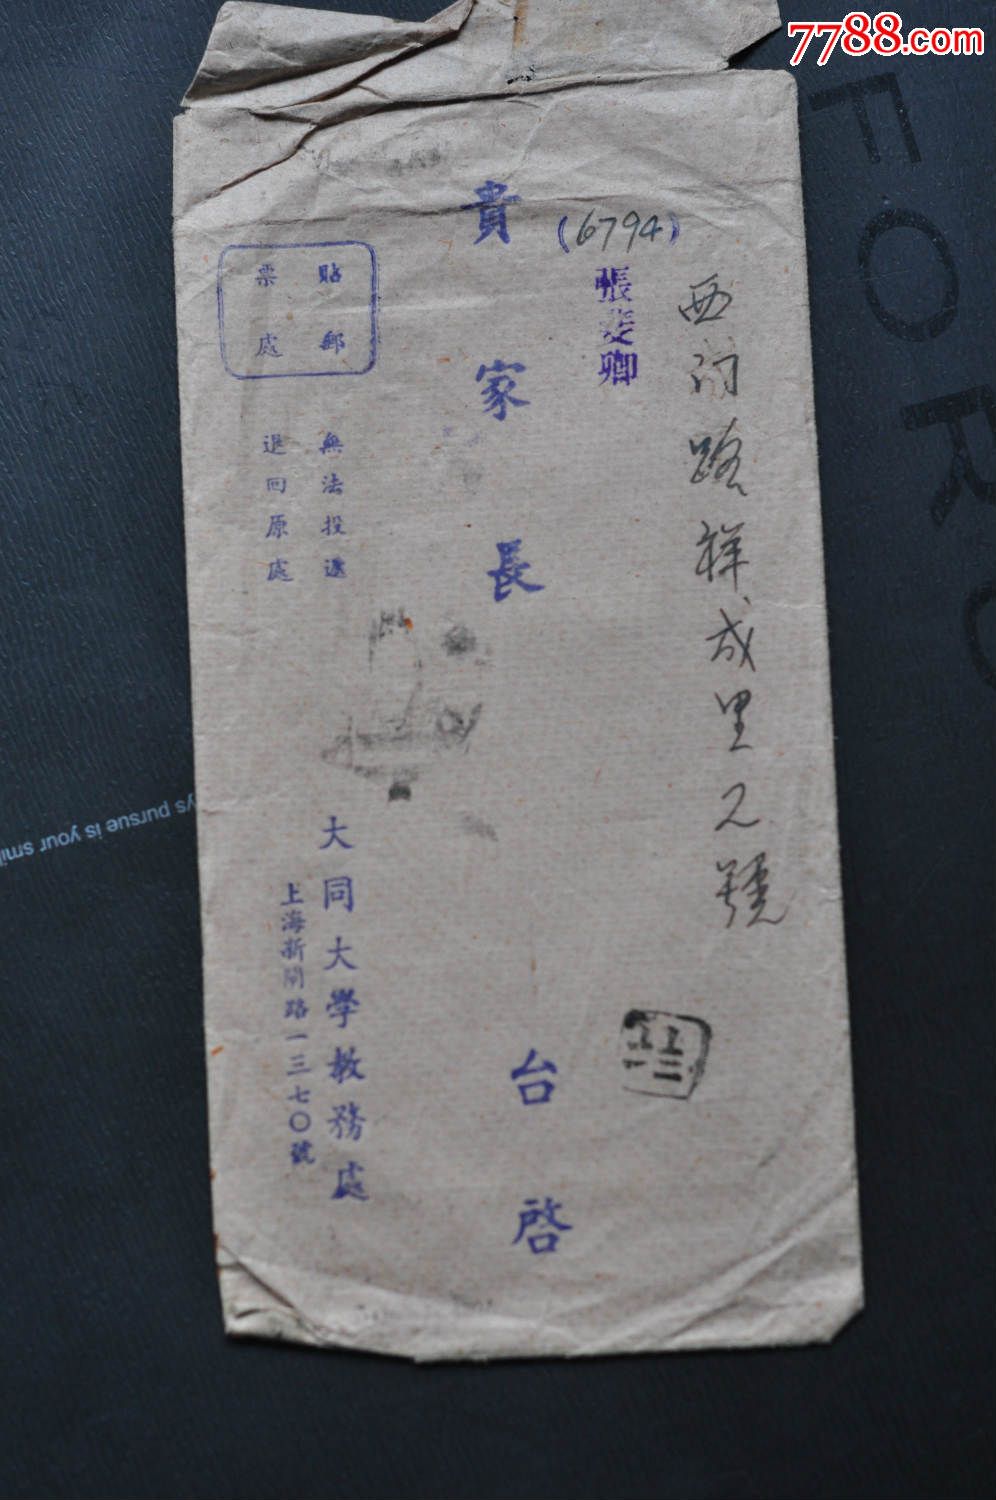 7788.com
西門路祥成里2號
(6794)
張斐卿
貴家長 台啓
貼郵
票處
無法投遞
退回原處
大同大學教務處
上海新閘路一三七〇號
FORO
ys pursue is your smi